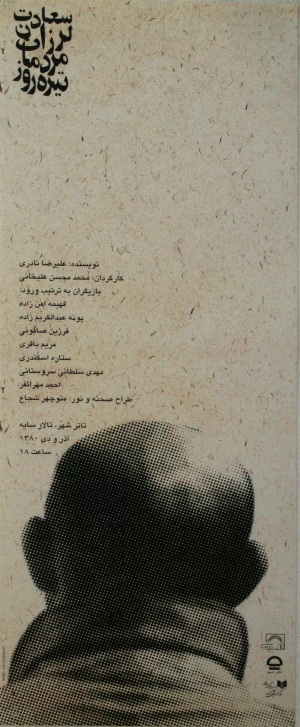 سعادت
لرزان
مردمان
تیره‌روز
نویسنده: علیرضا نادری
کارگردان: محمد محسن علیخانی
بازیگران به ترتیب ورود:
فهیمه امن زاده
پونه عبدالکریم زاده
فرزین صابونی
مریم باقری
ستاره اسکندری
مهدی سلطانی سروستانی
احمد مهرانفر
طراح صحنه و نور: منوچهر شجاع
تئاتر شهر، تالار سایه
آذر و دی ۱۳۸۰
ساعت ۱۸